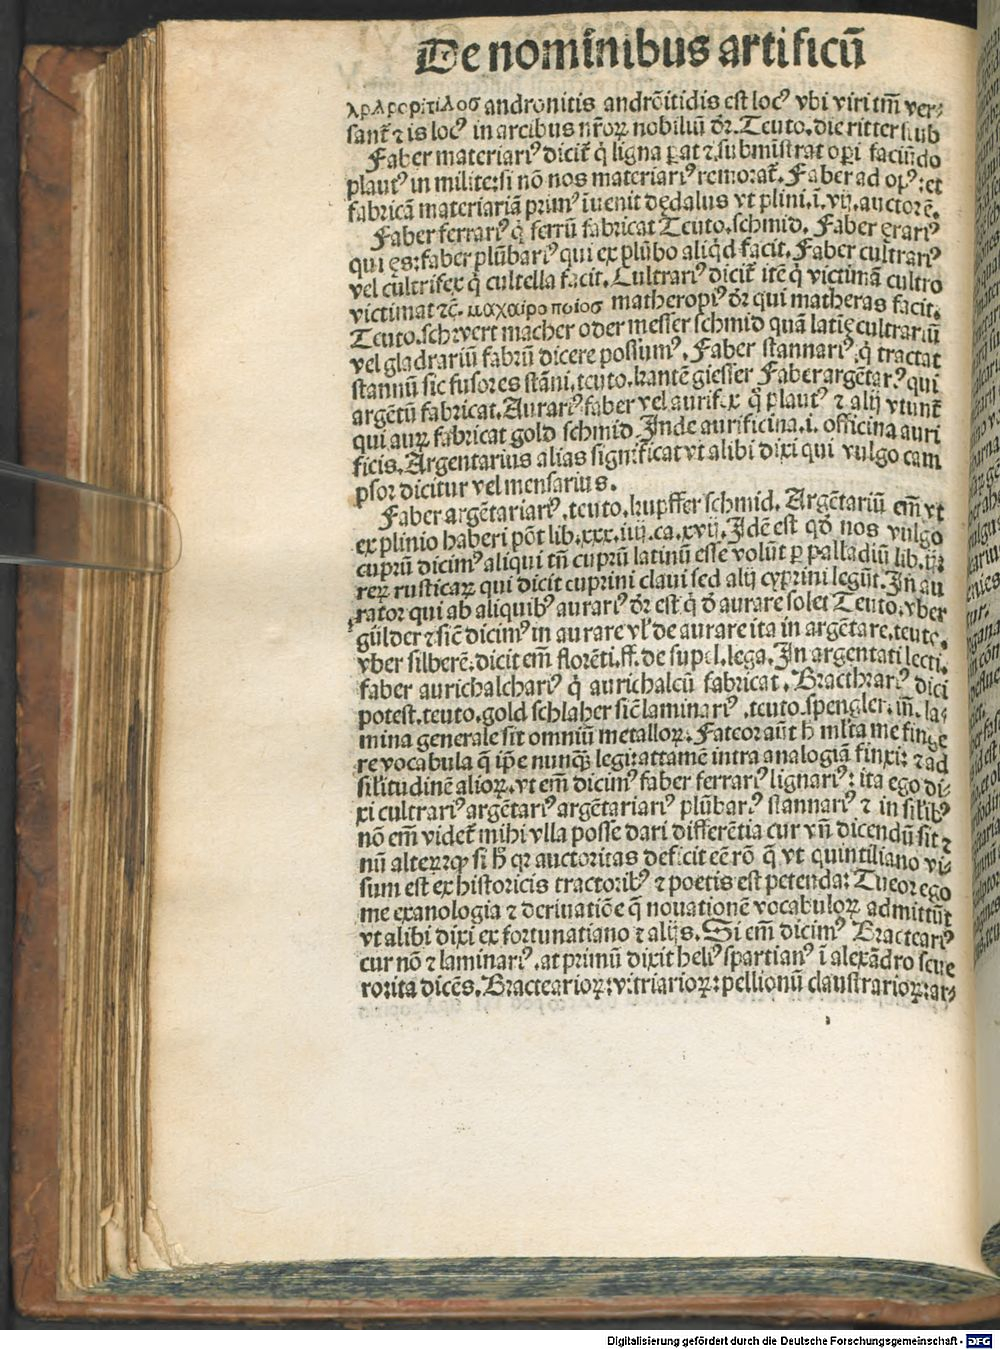 De nominibus artificū
andronitis andrōitidis est locꝰ vbi viri tm̄ ver⸗
sant᷑ ⁊ is locꝰ in arcibus nr̄oꝝ nobiliū dr̄. Teuto. die ritter stub
Faber materiariꝰ dicit᷑ q̇ ligna ꝑat ⁊ subministrat oꝑi faciūdo
plautꝰ in milite: si nō nos materiariꝰ remorat᷑. Faber ad opꝰ: et
fabricā materiariā primꝰ iuenit dędalus vt plini. i. vij. auctorē.
Faber ferrariꝰ q̇ ferrū fabricat Teuto. schmid. Faber ęrariꝰ
qui ęs: faber plūbariꝰ qui ex plūbo aliq̇d facit. Faber cultrariꝰ
vel cultrifex q̇ cultella facit. Cultrariꝰ dicit᷑ itē q̇ victimā cultro
victimat ⁊c̄. μαχαιροποιοσ matheropiꝰ dr̄ qui matheras facit.
Teuto. schwert macher oder messer schmid quā latinę cultrariū
vel gladrariū fabrū dicere possumꝰ. Faber stannariꝰ q̇ tractat
stannū sic fusores stāni. teuto. kantē giesser Faber argētarꝰ qui
argētū fabricat. Aurariꝰ faber vel aurifex q̄ plautꝰ ⁊ alij vtunt᷑
qui auꝝ fabricat gold schmid. Inde aurificina. i. officina auri
ficis. Argentarius alias significat vt alibi dixi qui vulgo cam
psor dicitur vel mensarius.
Faber argētariariꝰ. teuto. kupffer schmid. Argētariū em̄ vt
ex plinio haberi pōt lib. xxx. iiij. ca. xvij. Idē est qd̄ nos vulgo
cuprū dicimꝰ aliqui tn̄ cuprū latinū esse volūt ꝑ palladiū lib. ij:
reꝝ rusticaꝝ qui dicit cuprini claui sed alij cyprini legūt. In̄ au
rator qui ab aliquibꝰ aurariꝰ dr̄ est q̇ d̄ aurare solet Teuto. vber
gülder ⁊ siē dicimꝰ in aurare vl' de aurare ita in argētare. teuto.
vber silberē. dicit em̄ florēti. ff. de supel. lega. In argentati lecti.
faber aurichalchariꝰ q̇ aurichalcū fabricat. Bracthrariꝰ dici
potest. teuto. gold schlaher siē laminariꝰ. teuto. spengler. in̄. la⸗
mina generale sit omniū metalloꝝ. Fateor aūt h̄ ml'ta me finge
re vocabula q̄ ip̄e nunqꝫ legi: attamē intra analogiā finxi: ⁊ ad
sil'itudinē alioꝝ. vt em̄ dicimꝰ faber ferrariꝰ lignariꝰ: ita ego di⸗
xi cultrariꝰ argētariꝰ argētariariꝰ plūbariꝰ stannariꝰ ⁊ in sil'ibꝰ
nō em̄ videt᷑ mihi vlla posse dari differētia cur vn̄ dicendū sit ⁊
nū alteꝝ si h̄ qꝛ auctoritas deficit eē rō q̄ vt quintiliano vi⸗
sum est ex historicis tractoribꝰ ⁊ poetis est petenda: Tueor ego
me ex anologia ⁊ deriuatiōe q̄ nouationē vocabuloꝝ admittūt
vt alibi dixi ex fortunatiano ⁊ alijs. Si em̄ dicimꝰ Bracteariꝰ
cur nō ⁊ laminariꝰ. at primū dixit heliꝰ spartianꝰ ī alexādro seue
ro: ita dicēs. Bracteariorꝝ: vitriarioꝝ: pellionū claustrarioꝝ: ar⸗
Digitalisierung gefördert durch die Deutsche Forschungsgemeinschaft - DFG